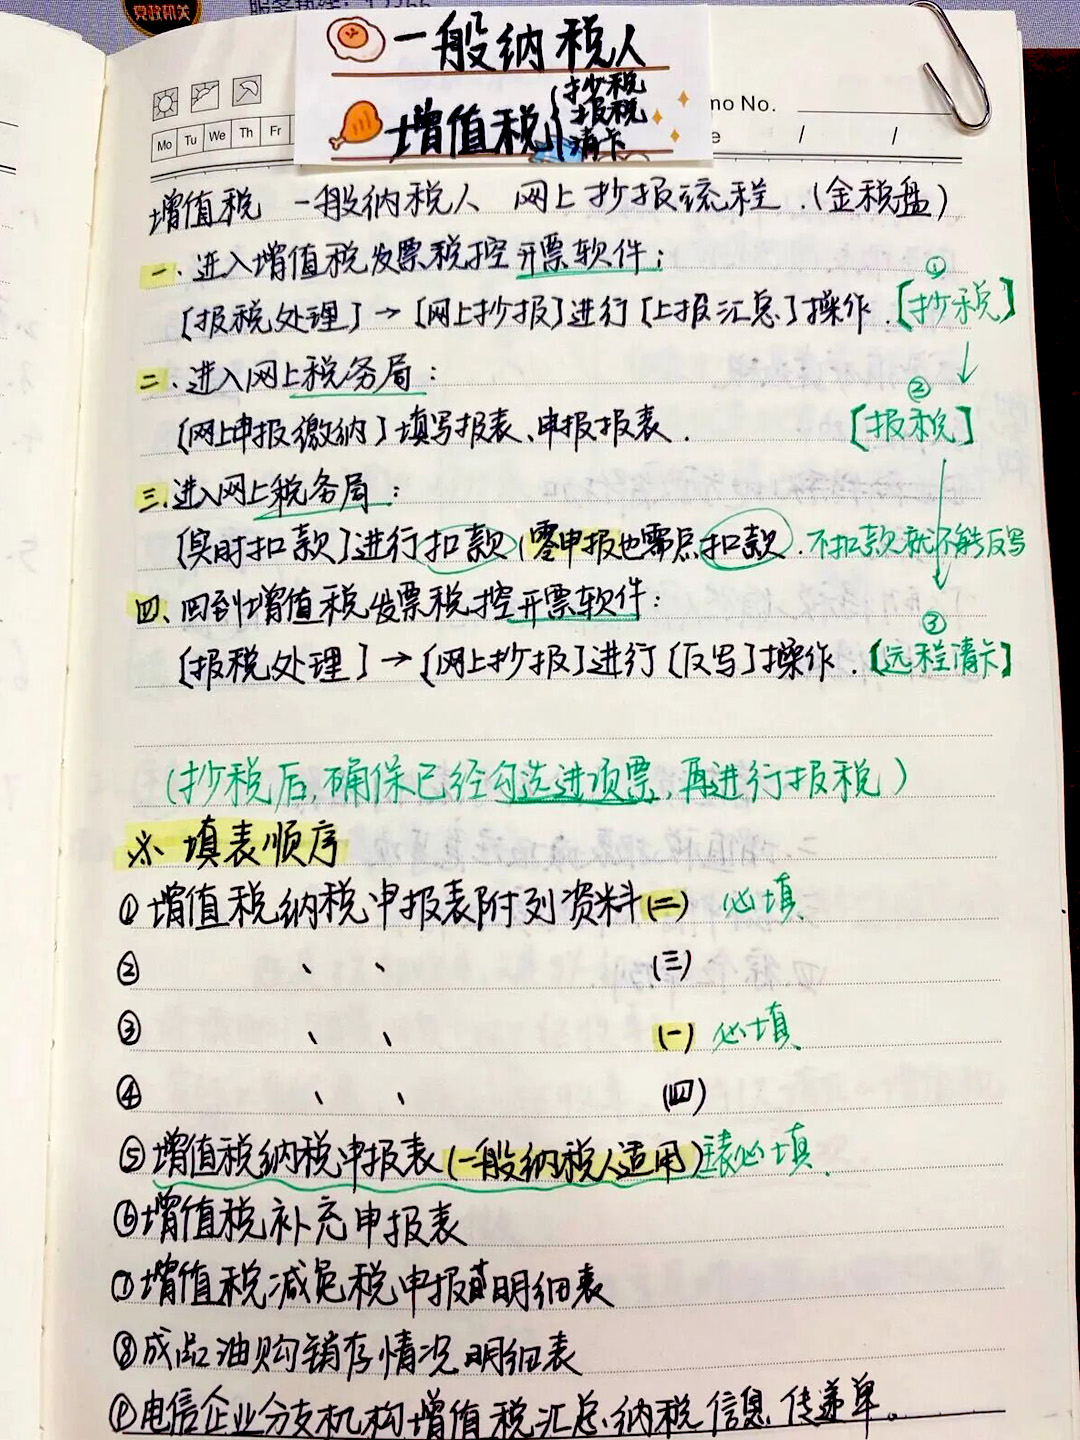 党政机关
一般纳税人
增值税{抄税
报税
清卡
Mo Tu We Th Fr
mo No.
增值税 一般纳税人 网上抄报流程.(金税盘)
一.进入增值税发票税控开票软件:
①
[报税处理]→[网上抄报]进行[上报汇总]操作.[抄税]
↓
二.进入网上税务局:
②
[网上申报缴纳]填写报表、申报报表. [报税]
三.进入网上税务局:
[实时扣款]进行扣款(零申报也需点扣款.不扣款就不能反写
四、回到增值税发票税控开票软件:
③
[报税处理]→[网上抄报]进行[反写]操作.[远程清卡]
(抄税后,确保已经勾选进项票,再进行报税)
※ 填表顺序
①增值税纳税申报表附列资料(二) 必填
② 、 、 (三)
③ 、 、 (一) 必填
④ 、 、 (四)
⑤增值税纳税申报表(一般纳税人适用)主表必填
⑥增值税补充申报表
⑦增值税减免税申报明细表
⑧成品油购销存情况明细表
⑨电信企业分支机构增值税汇总纳税信息传递单。